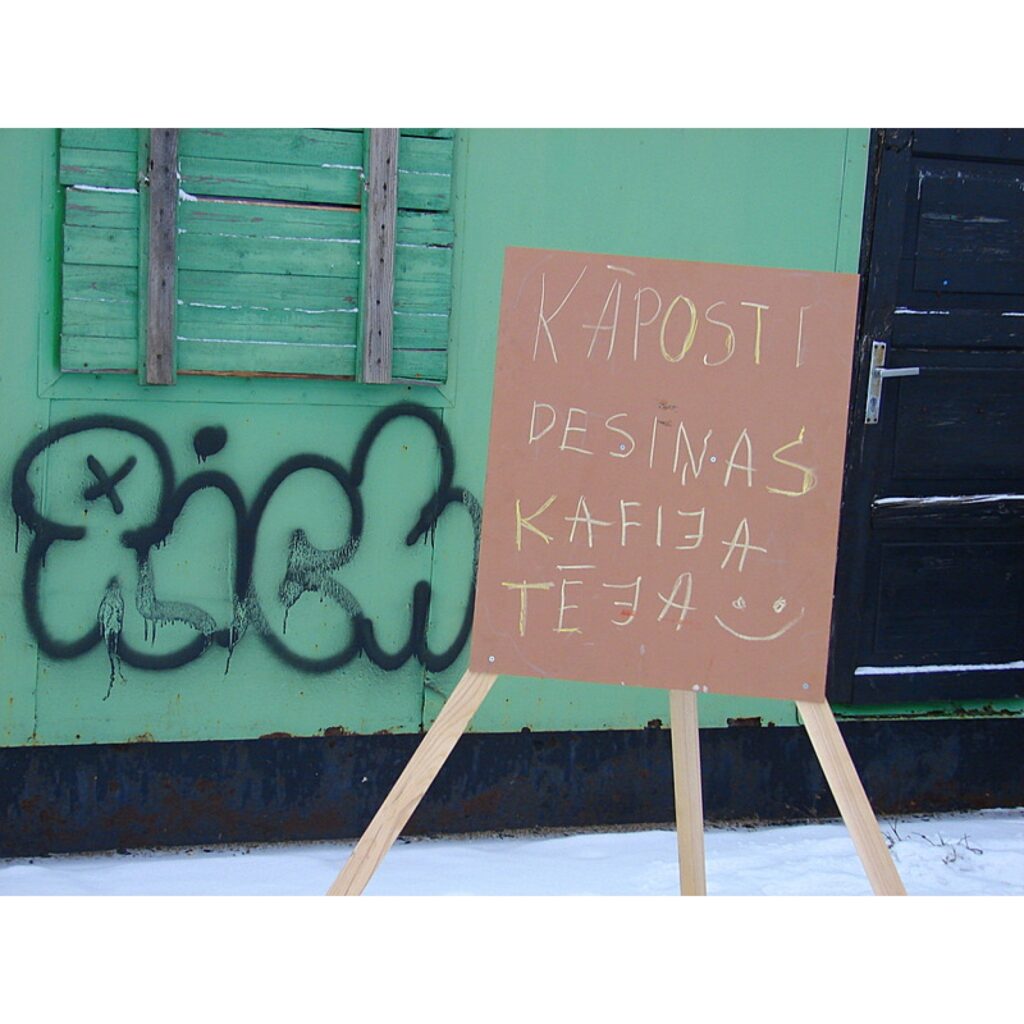 Rich
KĀPOSTI
DESIŅAS
KAFIJA
TĒJA